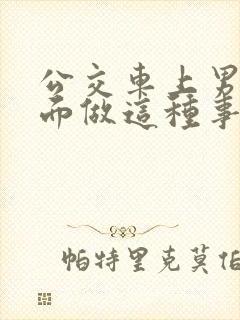 公交車上男
而做這種事
帕特里克莫伯